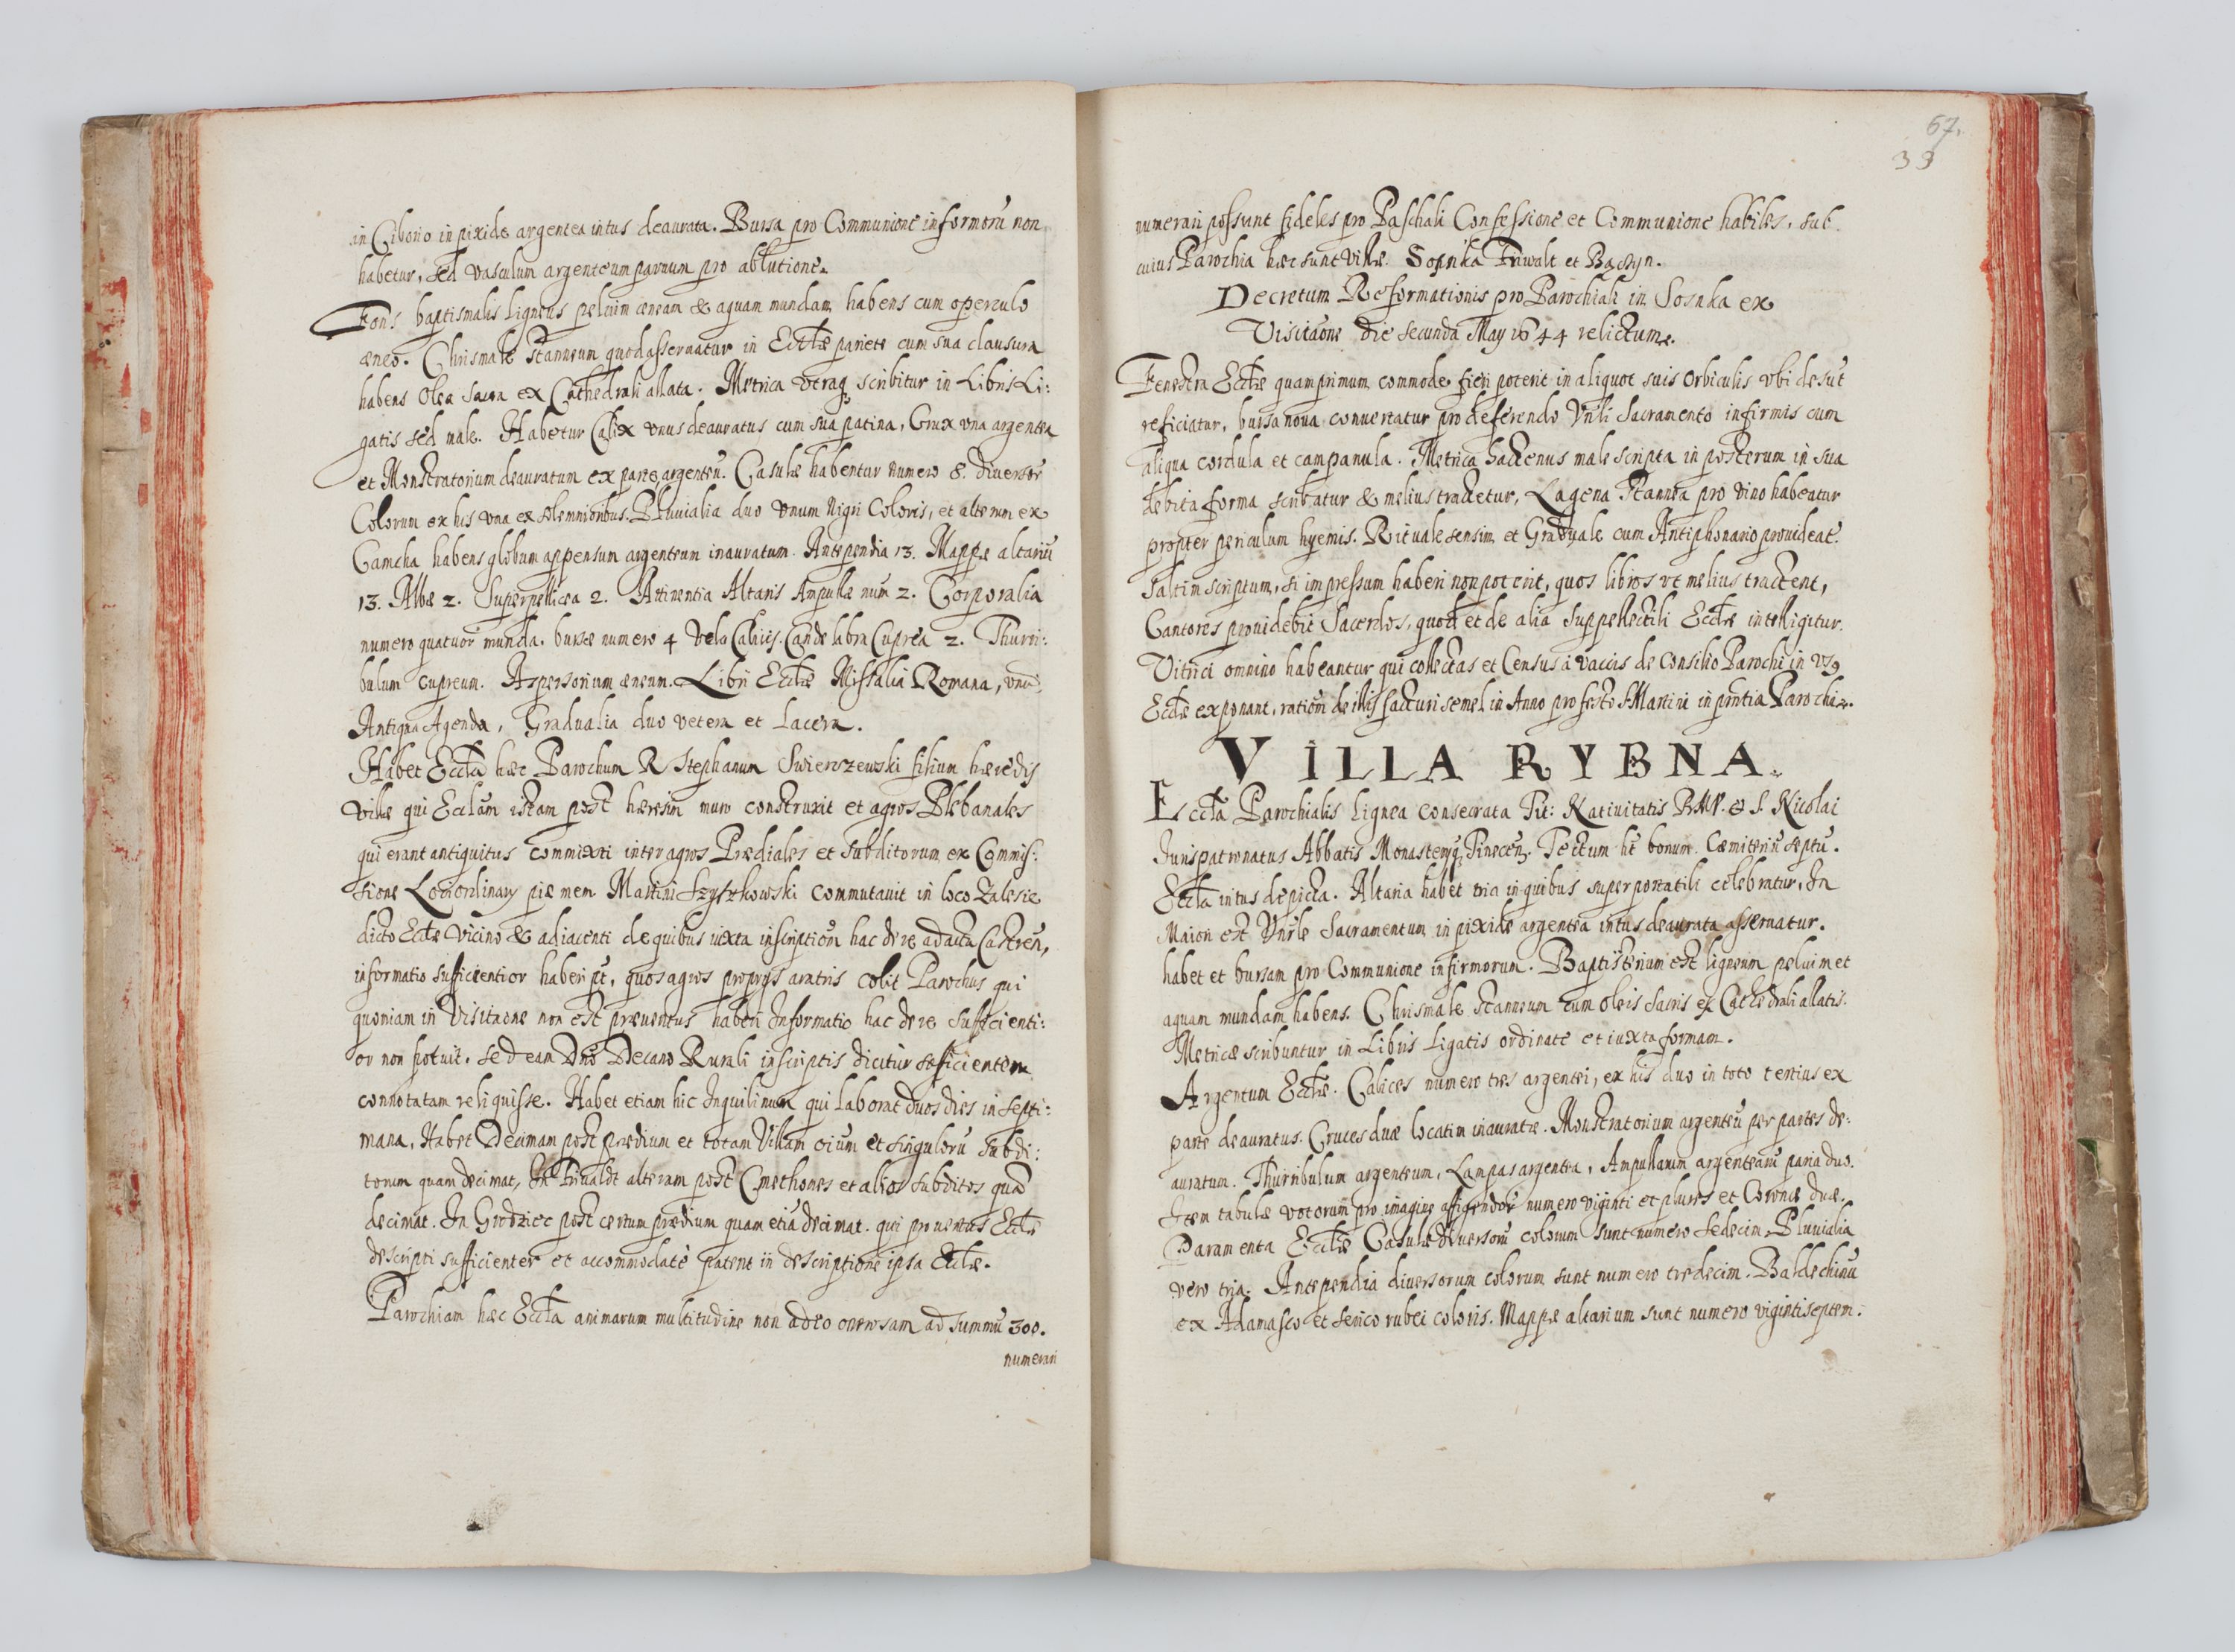 in Ciborio in pixide argentea intus deaurata. Bursa pro Communione infirmorũ non
habetur, sed vasculum argenteum paruum pro ablutione.
Fons baptismalis ligneus peluim æneam & aquam mundam habens cum operculo
æneo. Chrismale stanneum quod asseruatur in Ecclæ pariete cum sua clausura
habens Olea Sacra ex Cathedrali allata. Metrica vtraq scribitur in Libris Li:
gatis sed male. Habetur Calix vnus deauratus cum sua patina, Crux vna argentea
et Monstratorium deauratum ex parte argenteũ. Casulæ habentur numero 8. diuersor̃
Colorum ex his vna ex solemnioribus. Pluuialia duo vnum Nigri Coloris, et alterum ex
Camcha habens globum appensum argenteum inauratum. Antependia 13. Mappæ altariũ
13. Albæ 2. Superpellicea 2. Attinentia Altaris Ampullæ num 2. Corporalia
numero quatuor munda. bursæ numero 4 Vela Calicis. Candelabra Cuprea 2. Thuri:
bulum cupreum. Aspersorium æneum. Libri Ecclæ Missalia Romana, vnũ
Antiqua Agenda, Gradualia duo vetera et lacera.
Habet Eccla hæc Parochum R Stephanum Swierczewski filium hæredis
villæ qui Eccl̃am istam post hæresim muro construxit et agros Plebanales
qui erant antiquitus commixti inter agros Prædiales et Subditorum ex Commis:
sione Loci ordinary piæ mem Martini Szyszkowski commutauit in loco Zalesie
dicto Ecclæ vicino & adiacenti de quibus iuxta inscription̄ hac de re ad acta Castreñ,
informatio sufficientior haberi pt̃, quos agros proprys aratris colit Parochus qui
quoniam in Visitaone non est præuentus haberi Informatio hac de re sufficienti:
or non potuit. sed eam Dnõ Decano Rurali inscriptis dicitur sufficientem
connotatam reliquisse. Habet etiam hic Inquilinum qui laborat duos dies in septi:
mana, Habet Decimam post prædium et totam Villam oium et singulorũ subdi:
torum quam decimat, In Friwaldt alteram post Cmethones et alios subditos quã
decimat. In Grodziec post certum prædium quam etiã decimat. qui prouentus Ecclæ
descripti sufficienter et accommodatè patent in descriptione ipsa Ecclæ.
Parochiam hæc Eccla animarum multitudine non adeo onerosam ad summũ 300.
numerari
67.
33
numerari possunt fideles pro Paschali Confessione et Communione habiles, sub
cuius Parochia hæc sunt villæ. Sosnka Friwalt et Baczyn.
Decretum Reformationis pro Parochiali in Sosnka ex
Visitaone die secunda May 1644 relictum.
Fenestra Ecclæ quamprimum commode fieri poterit in aliquot suis orbiculis vbi desũt
reficiatur, bursa noua conuertatur pro deferendo Vnr̃li Sacramento infirmis cum
aliqua cordula et campanula. Metrica hactenus male scripta in posterum in sua
debita forma scribatur & melius tractetur, Lagena stannea pro vino habeatur
propter periculum hyemis. Rituale sensim et Graduale cum Antiphonario prouideat̃.
saltim scriptum, si impressum haberi non poterit, quos libros vt melius tractent,
Cantores prouidebit Sacerdos, quod et de alia suppellectili Ecclæ intelligitur.
Vitrici omnino habeantur qui collectas et Census à vaccis de Consilio Parochi in vsq
Ecclæ exponant, rationem de illis facturi semel in Anno pro festo S Martini in pñtia Parochi.
VILLA RYBNA.
Eccla Parochialis lignea consecrata Tit: Natiuitatis B.M.V. & S. Nicolai
Iuris patronatus Abbatis Monastery Tinecen. Tectum ht̃ bonum. Cæmiteriũ septũ.
Eccla intus depicta. Altaria habet tria in quibus super portatili celebratur, In
Maiori est Vnr̃le Sacramentum in pixide argentea intus deaurata asseruatur.
habet et bursam pro Communione infirmorum. Baptisterium est ligneum peluim et
aquam mundam habens. Chrismale stanneum cum oleis sacris ex Cathedrali allatis.
Metricæ scribuntur in Libris Ligatis ordinate et iuxta formam.
Argentum Ecclæ. Calices numero tres argentei, ex his duo in toto tertius ex
parte deauratus. Cruces duæ locatim inauratæ. Monstratorium argenteũ per partes de:
auratum. Thuribulum argenteum, Lampas argentea, Ampullarum argentearũ paria duo.
Item tabulæ votorum pro imagine affigendor̃ numero viginti et plures et Coronæ duæ.
Paramenta Ecclæ Casulæ diuersorũ colorum sunt numero sedecim, Pluuialia
vero tria. Antependia diuersorum colorum sunt numero tredecim. Baldechinũ
ex Adamasco et serico rubei coloris. Mappæ altarium sunt numero vigintiseptem.